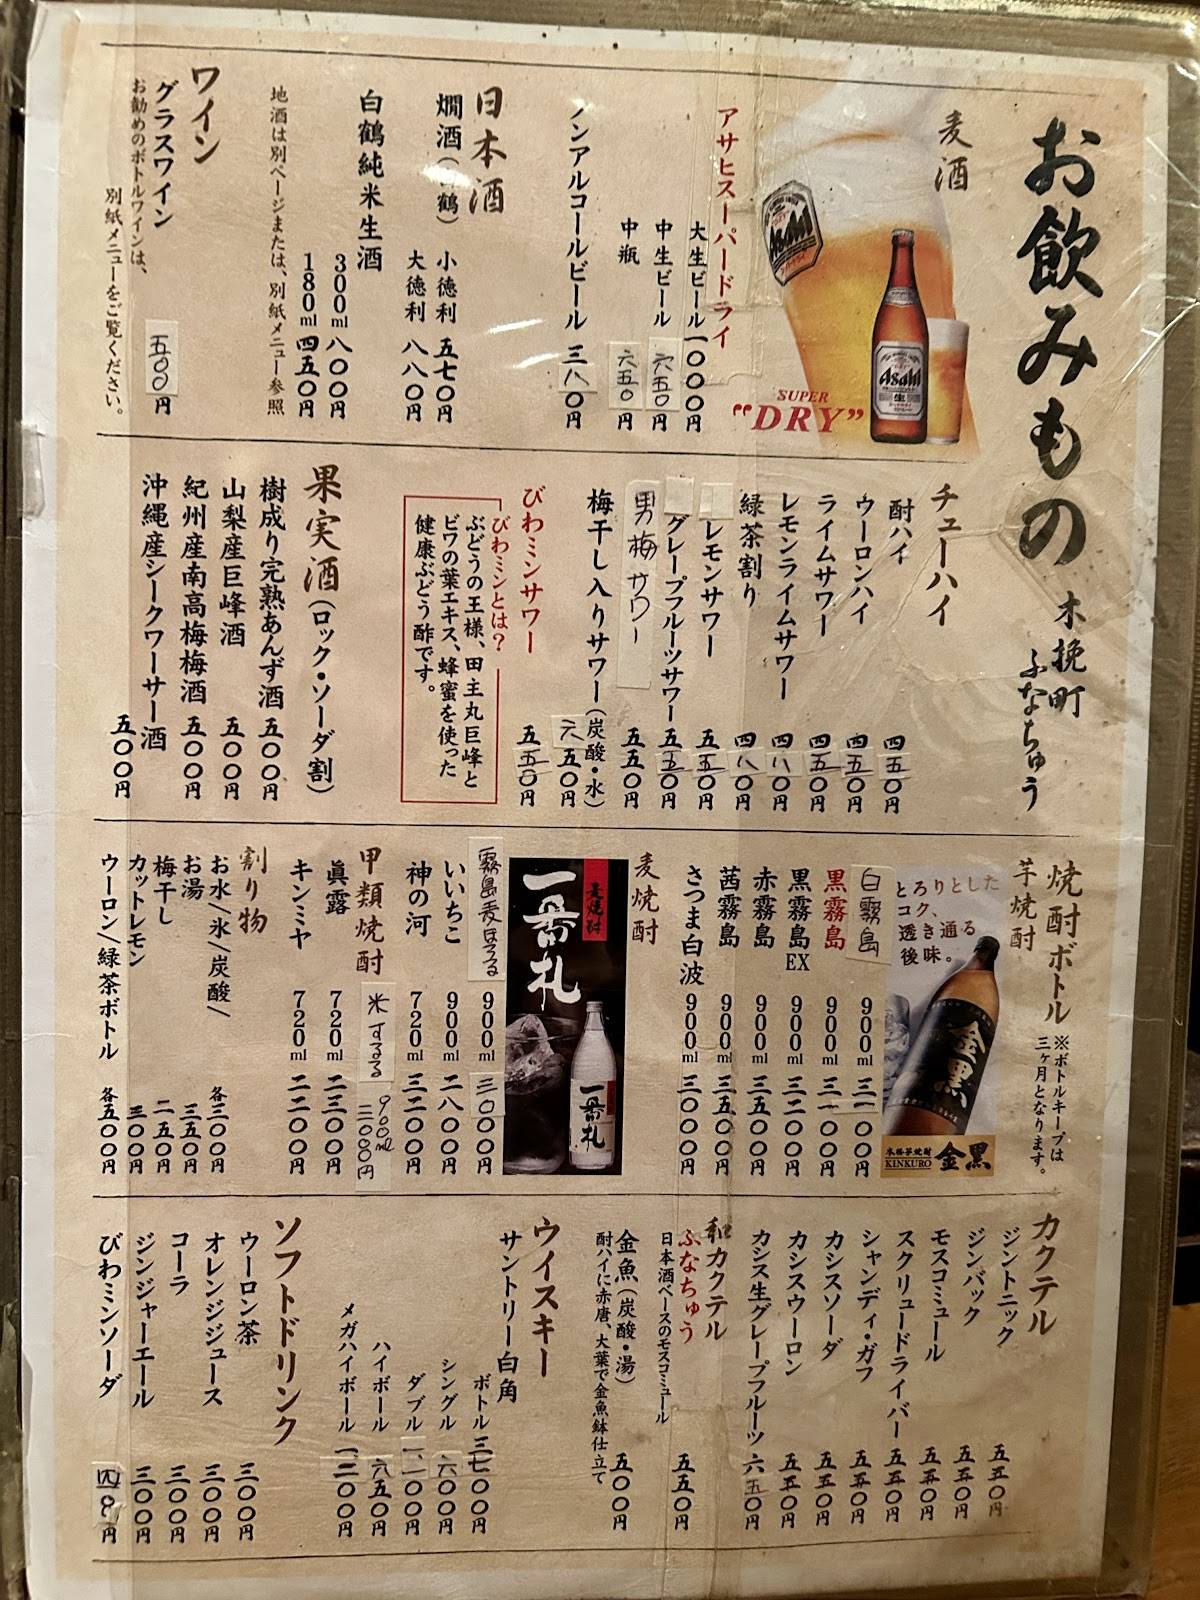 お飲みもの
木挽町
ふなちゅう
麦酒
アサヒスーパードライ
大生ビール 一〇〇〇円
中生ビール 六五〇円
中瓶 六五〇円
ノンアルコールビール 三八〇円
Asahi
Asahi
生
SUPER
"DRY"
日本酒
燗酒(白鶴) 小徳利 五七〇円
大徳利 八八〇円
白鶴純米生酒
300ml 八〇〇円
180ml 四五〇円
地酒は別ページまたは、別紙メニュー参照
ワイン
グラスワイン 五〇〇円
お勧めのボトルワインは、
別紙メニューをご覧ください。
チューハイ
酎ハイ 四五〇円
ウーロンハイ 四五〇円
ライムサワー 四五〇円
レモンライムサワー 四八〇円
緑茶割り 四八〇円
レモンサワー 五五〇円
グレープフルーツサワー 五五〇円
男梅サワー 五五〇円
梅干し入りサワー(炭酸・水) 六五〇円
びわミンサワー 五五〇円
びわミンとは?
ぶどうの王様、田主丸巨峰と
ビワの葉エキス、蜂蜜を使った
健康ぶどう酢です。
果実酒(ロック・ソーダ割)
樹成り完熟あんず酒 五〇〇円
山梨産巨峰酒 五〇〇円
紀州産南高梅梅酒 五〇〇円
沖縄産シークワーサー酒 五〇〇円
焼酎ボトル ※ボトルキープは
三ヶ月となります。
芋焼酎
とろりとした
コク、
透き通る
後味。
金黒
本格芋焼酎
KINKURO
金黒
白霧島 900ml 三一〇〇円
黒霧島 900ml 三一〇〇円
黒霧島EX 900ml 三二〇〇円
赤霧島 900ml 三五〇〇円
茜霧島 900ml 三五〇〇円
さつま白波 900ml 三〇〇〇円
麦焼酎
麦焼酎
一番札
一番札
霧島麦ほろる 900ml 三〇〇〇円
いいちこ 900ml 二八〇〇円
神の河 720ml 三二〇〇円
甲類焼酎
米するる 900ml 三〇〇〇円
眞露 720ml 二三〇〇円
キンミヤ 720ml 二二〇〇円
割り物
お水/氷/炭酸/ 各三〇〇円
お湯 三五〇円
梅干し 二五〇円
カットレモン 三〇〇円
ウーロン/緑茶ボトル 各五〇〇円
カクテル
ジントニック 五五〇円
ジンバック 五五〇円
モスコミュール 五五〇円
スクリュードライバー 五五〇円
シャンディ・ガフ 五五〇円
カシスソーダ 五五〇円
カシスウーロン 五五〇円
カシス生グレープフルーツ 六五〇円
和カクテル
ふなちゅう 五五〇円
日本酒ベースのモスコミュール
金魚(炭酸・湯) 五〇〇円
酎ハイに赤唐、大葉で金魚鉢仕立て
ウイスキー
サントリー白角
ボトル 三七〇〇円
シングル 六〇〇円
ダブル 一、一〇〇円
ハイボール 六五〇円
メガハイボール 一、二〇〇円
ソフトドリンク
ウーロン茶 三〇〇円
オレンジジュース 三〇〇円
コーラ 三〇〇円
ジンジャーエール 三〇〇円
びわミンソーダ